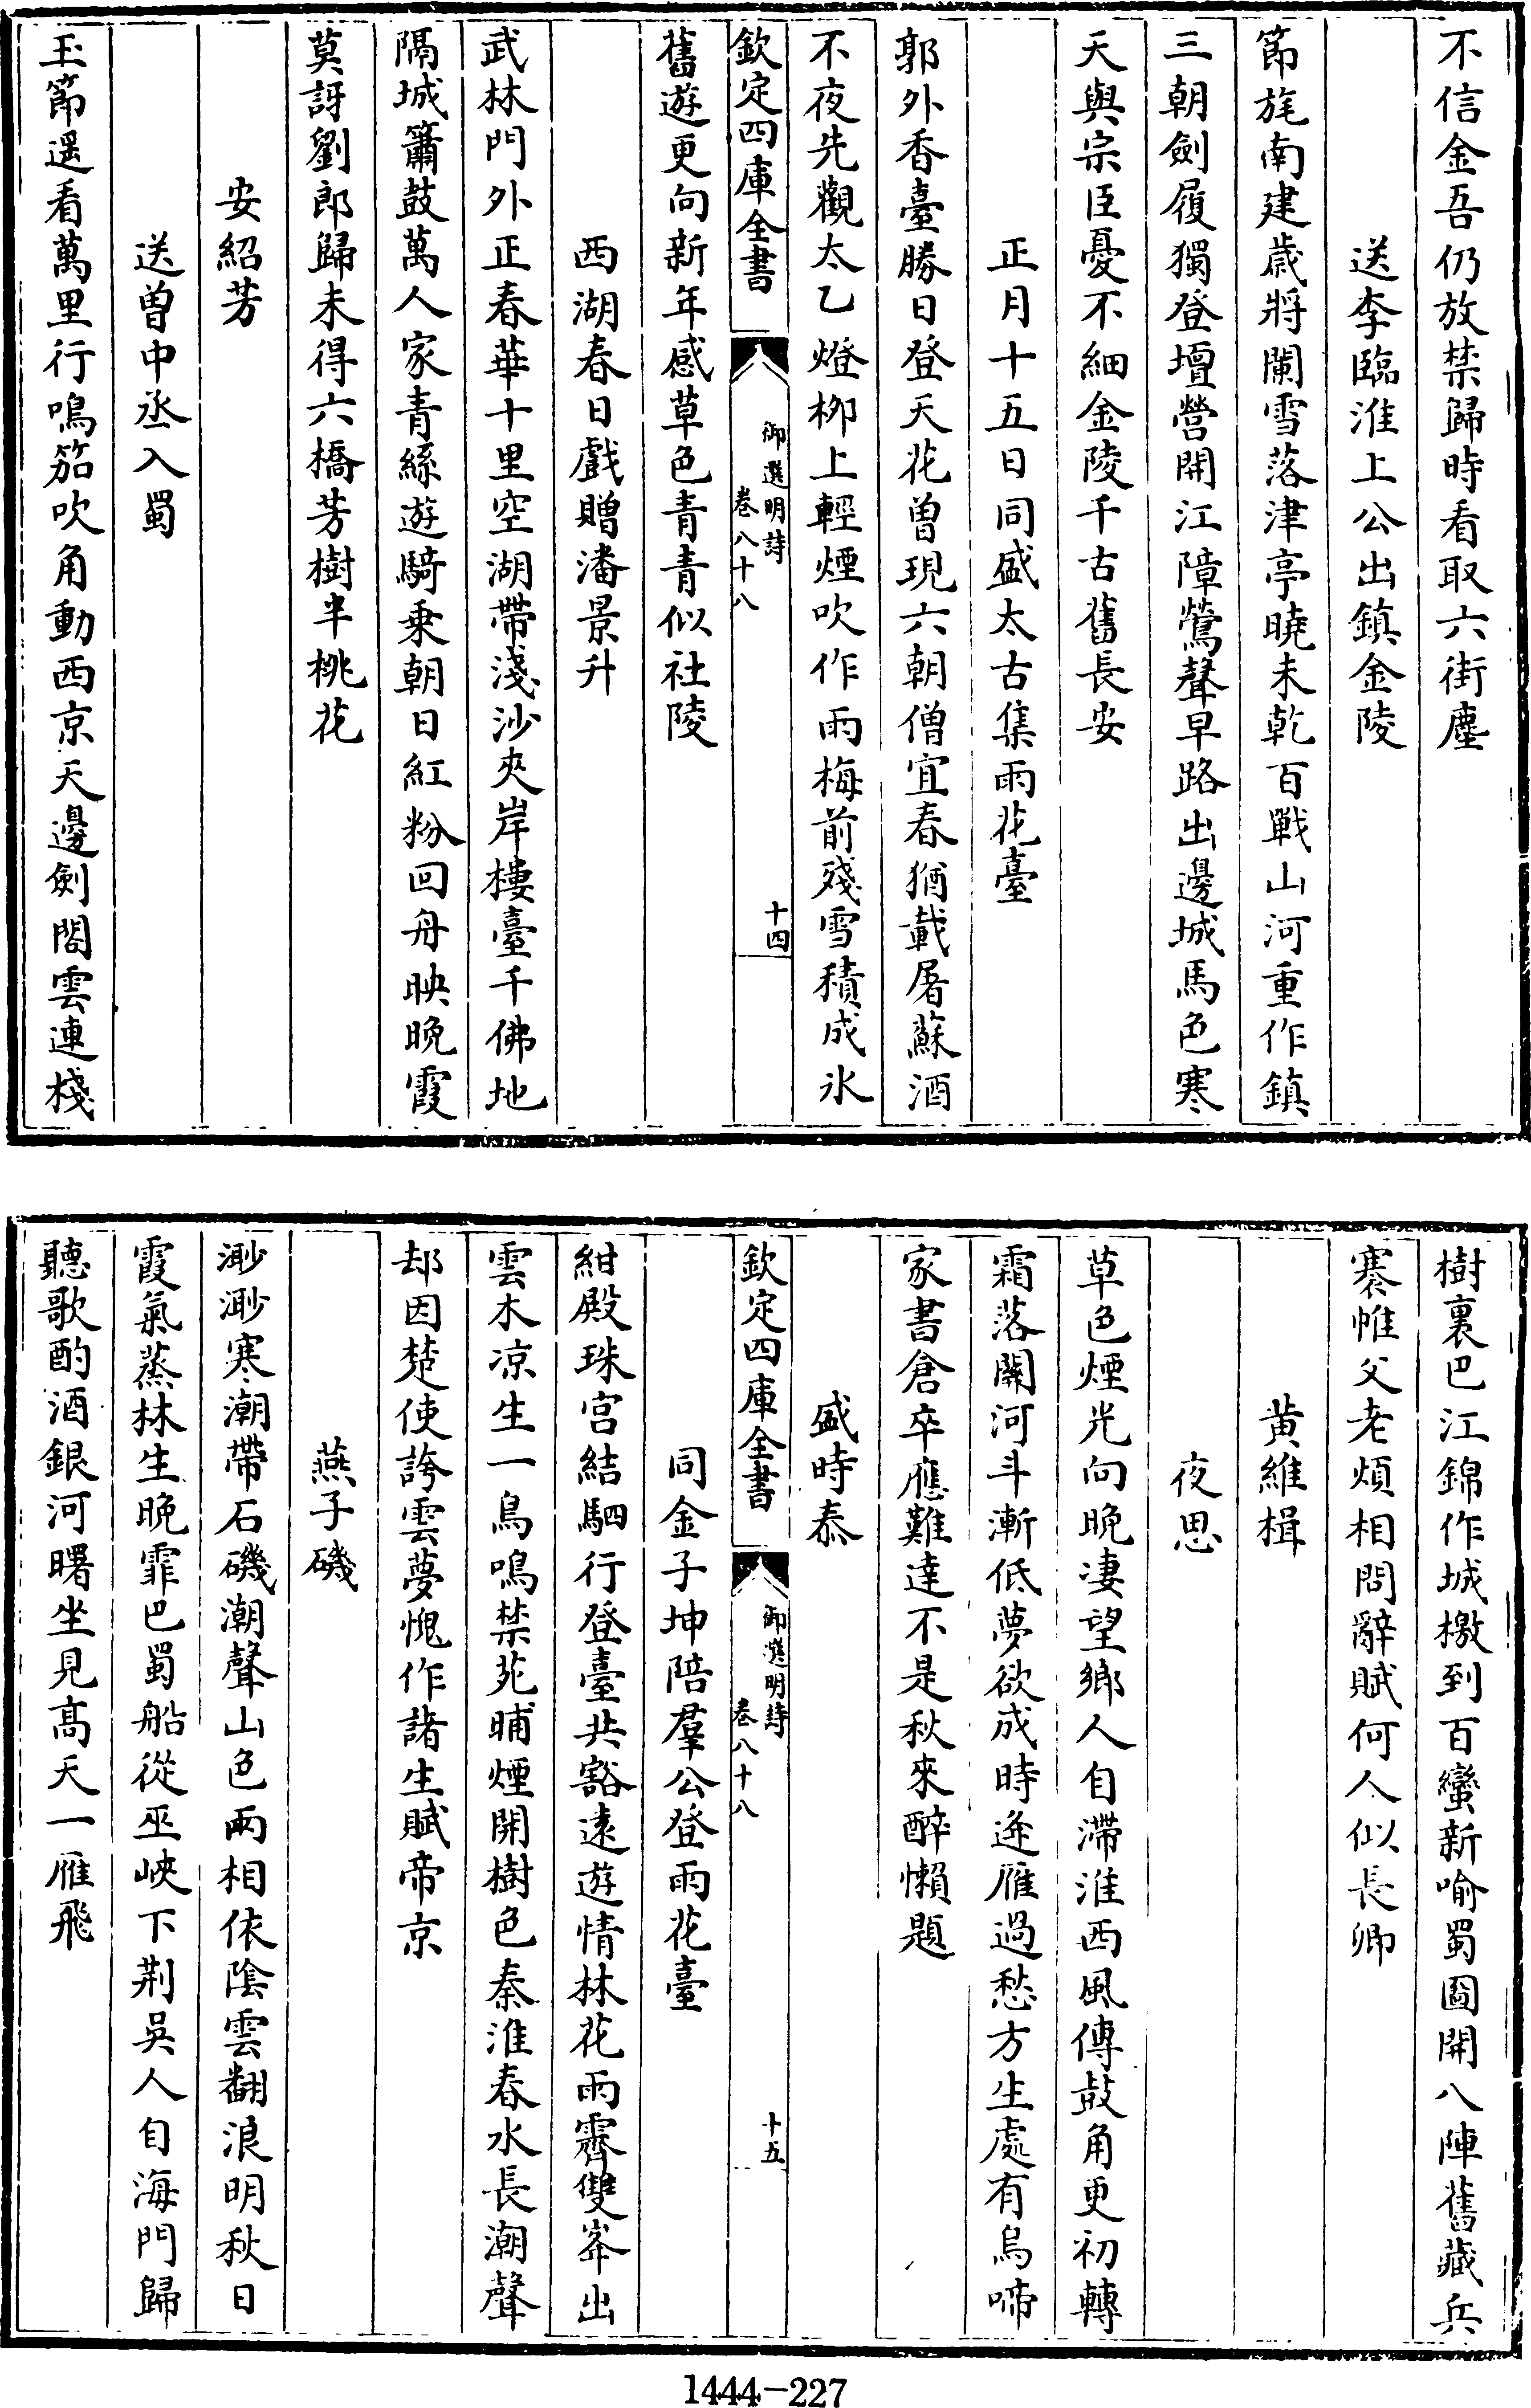 不信金吾仍放禁歸時看取六街塵
送李臨淮上公出鎮金陵
節旄南建歲將闌雪落津亭曉未乾百戰山河重作鎮
三朝劍履獨登壇營開江障鶯聲早路出邊城馬色寒
天與宗臣憂不細金陵千古舊長安
正月十五日同盛太古集雨花臺
郭外香臺勝日登天花曾現六朝僧宜春猶載屠蘇酒
不夜先觀太乙燈柳上輕煙吹作雨梅前殘雪積成氷
欽定四庫全書
御選明詩
卷八十八
十四
舊遊更向新年感草色青青似杜陵
西湖春日戲贈潘景升
武林門外正春華十里空湖帶淺沙夾岸樓臺千佛地
隔城簫鼓萬人家青絲遊騎乗朝日紅粉回舟映晚霞
莫訝劉郎歸未得六橋芳樹半桃花
安紹芳
送曾中丞入蜀
玉節遥看萬里行鳴笳吹角動西京天邊劍閣雲連棧
樹裏巴江錦作城檄到百蠻新喻蜀圖開八陣舊藏兵
褰帷父老煩相問辭賦何人似長卿
黄維楫
夜思
草色煙光向晚凄望鄉人自滯淮西風傳鼓角更初轉
霜落關河斗漸低夢欲成時逢雁過愁方生處有烏啼
家書倉卒應難達不是秋來醉懶題
盛時泰
欽定四庫全書
御選明詩
卷八十八
十五
同金子坤陪羣公登雨花臺
紺殿珠宮結駟行登臺共豁遠遊情林花雨霽雙峯出
雲木凉生一鳥鳴禁苑晡煙開樹色秦淮春水長潮聲
却因楚使誇雲夢愧作諸生賦帝京
燕子磯
渺渺寒潮帶石磯潮聲山色兩相依陰雲翻浪明秋日
霞氣蒸林生晚霏巴蜀船從巫峽下荆吳人自海門歸
聽歌酌酒銀河曙坐見髙天一雁飛
1444-227